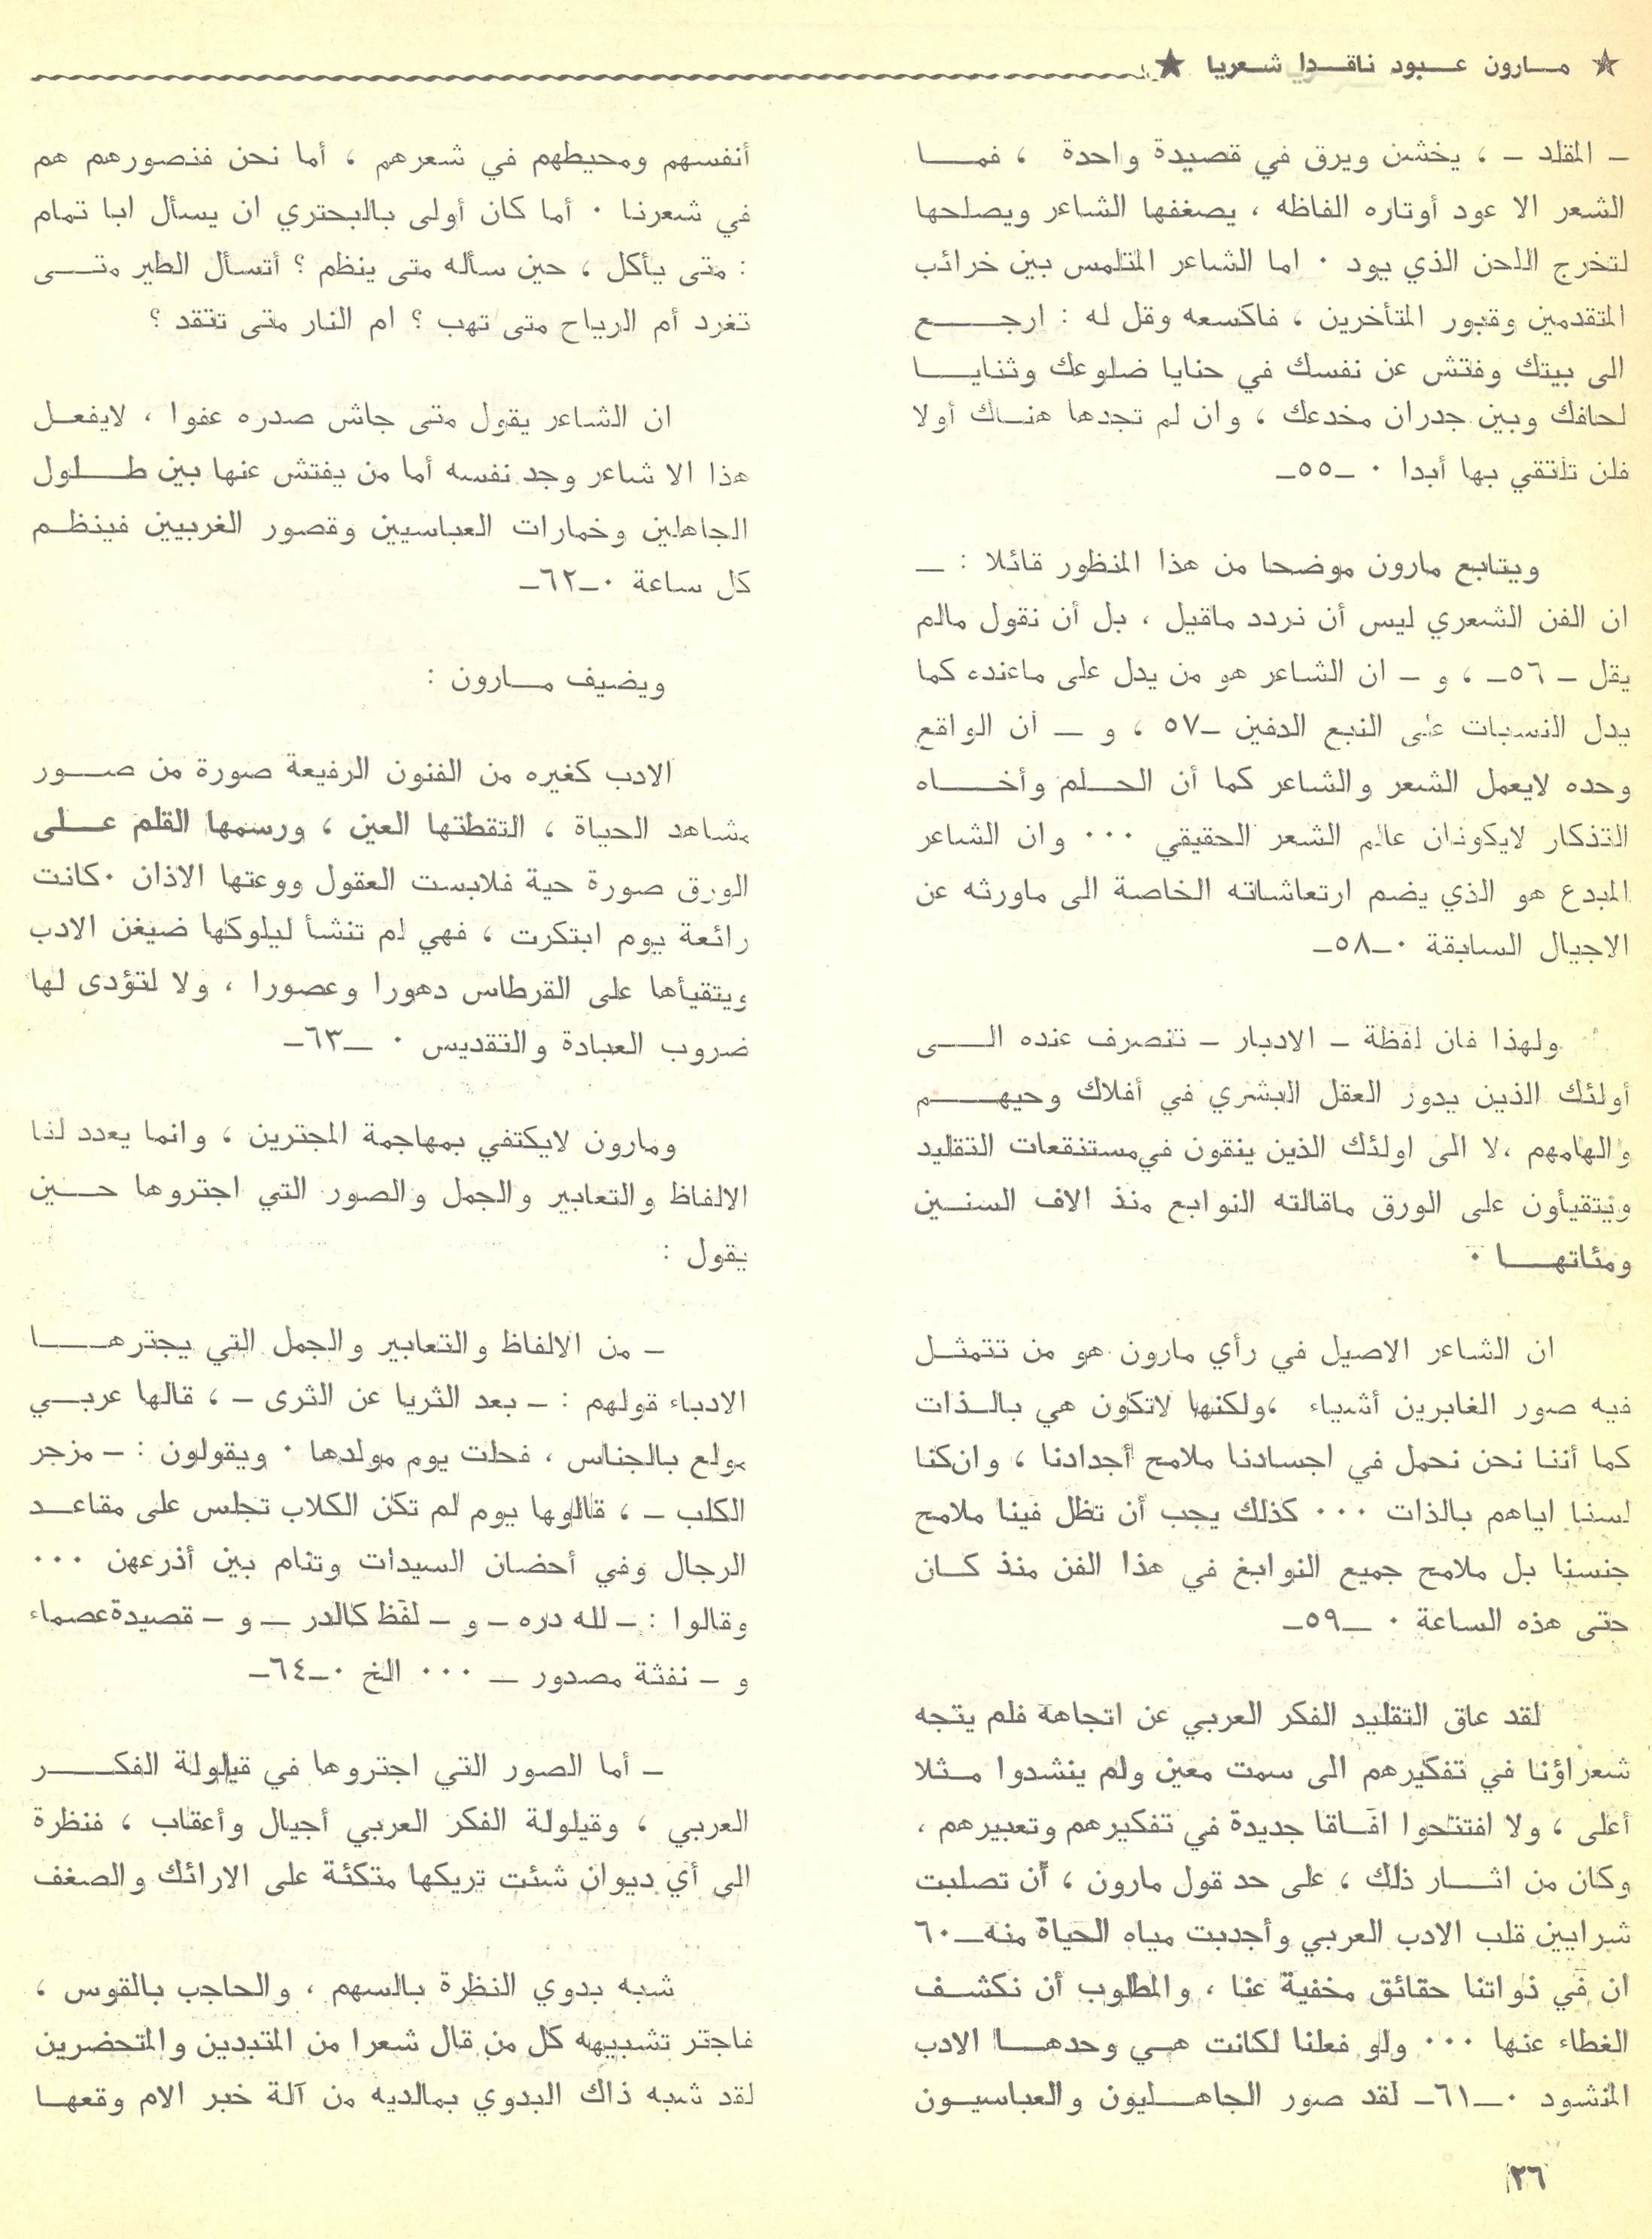 ★ مارون عبود ناقدا شعريا ★
ـ المقلد ـ ، يخشن ويرق في قصيدة واحدة ، فما
الشعر الا عود أوتاره الفاظه ، يصغفها الشاعر ويصلحها
لتخرج اللحن الذي يود ٠ اما الشاعر المتلمس بين خرائب
المتقدمين وقبور المتأخرين ، فاكسعه وقل له : ارجع
الى بيتك وفتش عن نفسك في حنايا ضلوعك وثنايا
لحافك وبين جدران مخدعك ، وان لم تجدها هناك أولا
فلن تلتقي بها أبدا ٠ ـ٥٥ـ
ويتابع مارون موضحا من هذا المنظور قائلا : ـ
ان الفن الشعري ليس أن نردد ماقيل ، بل أن نقول مالم
يقل ـ ٥٦ـ ، و ـ ان الشاعر هو من يدل على ماعنده كما
يدل النسبات على النبع الدفين ـ٥٧ ، و ـ أن الواقع
وحده لايعمل الشعر والشاعر كما أن الحلم وأخاه
التذكار لايكونان عالم الشعر الحقيقي ٠٠٠ وان الشاعر
المبدع هو الذي يضم ارتعاشاته الخاصة الى ماورثه عن
الاجيال السابقة ٠ـ٥٨ـ
ولهذا فان لفظة ـ الادبار ـ تنصرف عنده الى
أولئك الذين يدور العقل البشري في أفلاك وحيهم
والهامهم ،لا الى اولئك الذين ينقون في مستنقعات التقليد
ويتقيأون على الورق ماقالته النوابع منذ الاف السنين
ومئاتها ٠
ان الشاعر الاصيل في رأي مارون هو من تتمثل
فيه صور الغابرين أشياء ،ولكنها لاتكون هي بالذات
كما أننا نحن نحمل في اجسادنا ملامح أجدادنا ، وان كنا
لسنا اياهم بالذات ٠٠٠ كذلك يجب أن تظل فينا ملامح
جنسنا بل ملامح جميع النوابغ في هذا الفن منذ كان
حتى هذه الساعة ٠ ـ٥٩ـ
لقد عاق التقليد الفكر العربي عن اتجاهه فلم يتجه
شعراؤنا في تفكيرهم الى سمت معين ولم ينشدوا مثلا
أعلى ، ولا افتتحوا افاقا جديدة في تفكيرهم وتعبيرهم ،
وكان من اثار ذلك ، على حد قول مارون ، أن تصلبت
شرايين قلب الادب العربي وأجدبت مياه الحياة منه ـ٦٠
ان في ذواتنا حقائق مخفية عنا ، والمطلوب أن نكشف
الغطاء عنها ٠٠٠ ولو فعلنا لكانت هي وحدها الادب
المنشود ٠ـ٦١ـ لقد صور الجاهليون والعباسيون
أنفسهم ومحيطهم في شعرهم ، أما نحن فنصورهم هم
في شعرنا ٠ أما كان أولى بالبحتري ان يسأل ابا تمام
: متى يأكل ، حين سأله متى ينظم ؟ أتسأل الطير متى
تغرد أم الرياح متى تهب ؟ ام النار متى تتقد ؟
ان الشاعر يقول متى جاش صدره عفوا ، لايفعل
هذا الا شاعر وجد نفسه أما من يفتش عنها بين طلول
الجاهلين وخمارات العباسيين وقصور الغربيين فينظم
كل ساعة ٠ـ٦٢ـ
ويضيف مارون :
الادب كغيره من الفنون الرفيعة صورة من صور
مشاهد الحياة ، التقطتها العين ، ورسمها القلم على
الورق صورة حية فلابست العقول ووعتها الاذان ٠كانت
رائعة يوم ابتكرت ، فهي لم تنشأ ليلوكها ضيغن الادب
ويتقيأها على القرطاس دهورا وعصورا ، ولا لتؤدى لها
ضروب العبادة والتقديس ٠ ـ٦٣ـ
ومارون لايكتفي بمهاجمة المجترين ، وانما يعدد لنا
الالفاظ والتعابير والجمل والصور التي اجتروها حين
يقول :
ـ من الالفاظ والتعابير والجمل التي يجترها
الادباء قولهم : ـ بعد الثريا عن الثرى ـ ، قالها عربي
مولع بالجناس ، فحلت يوم مولدها ٠ ويقولون : ـ مزجر
الكلب ـ ، قالوها يوم لم تكن الكلاب تجلس على مقاعد
الرجال وفي أحضان السيدات وتنام بين أذرعهن ٠٠٠
وقالوا : ـ لله دره ـ و ـ لفظ كالدر ـ و ـ قصيدة عصماء
و ـ نفثة مصدور ـ ٠٠٠ الخ ٠ـ٦٤ـ
ـ أما الصور التي اجتروها في قيلولة الفكر
العربي ، وقيلولة الفكر العربي أجيال وأعقاب ، فنظرة
الى أي ديوان شئت تريكها متكئة على الارائك والصغف
شبه بدوي النظرة بالسهم ، والحاجب بالقوس ،
فاجتر تشبيهه كل من قال شعرا من المتبدين والمتحضرين
لقد شبه ذاك البدوي بمالديه من آلة خبر الام وقعها
٢٦